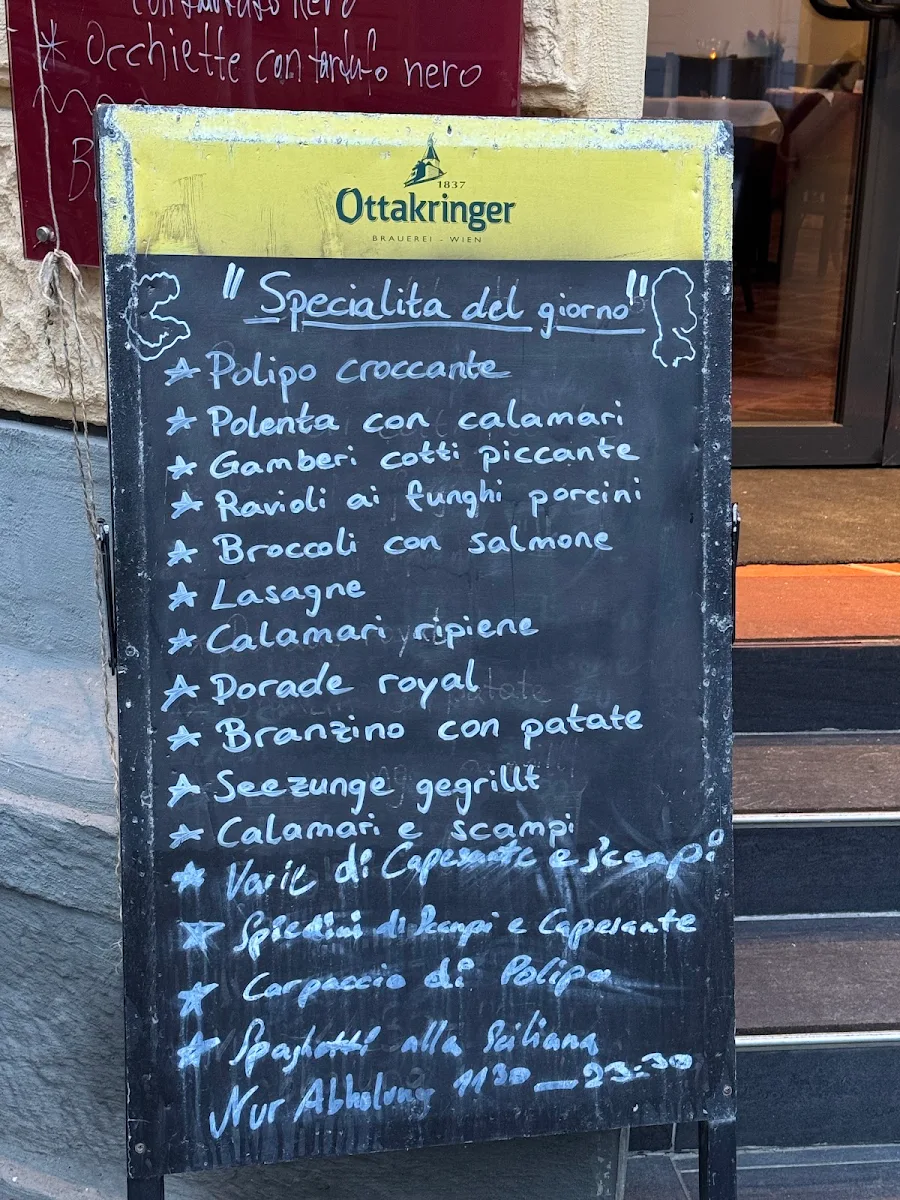 con tartufo nero
* Occhiette con tartufo nero
B
1837
Ottakringer
BRAUEREI - WIEN
"Specialita del giorno"
☆ Polipo croccante
☆ Polenta con calamari
☆ Gamberi cotti piccante
☆ Ravioli ai funghi porcini
☆ Broccoli con salmone
☆ Lasagne
☆ Calamari ripiene
☆ Dorade royal
☆ Branzino con patate
☆ Seezunge gegrillt
☆ Calamari e scampi
☆ Varie di Capesante e scampi
☆ Spiedini di scampi e Capesante
☆ Carpaccio di Polipo
☆ Spaghetti alla Siciliana
Nur Abholung 11³⁰ — 23:30